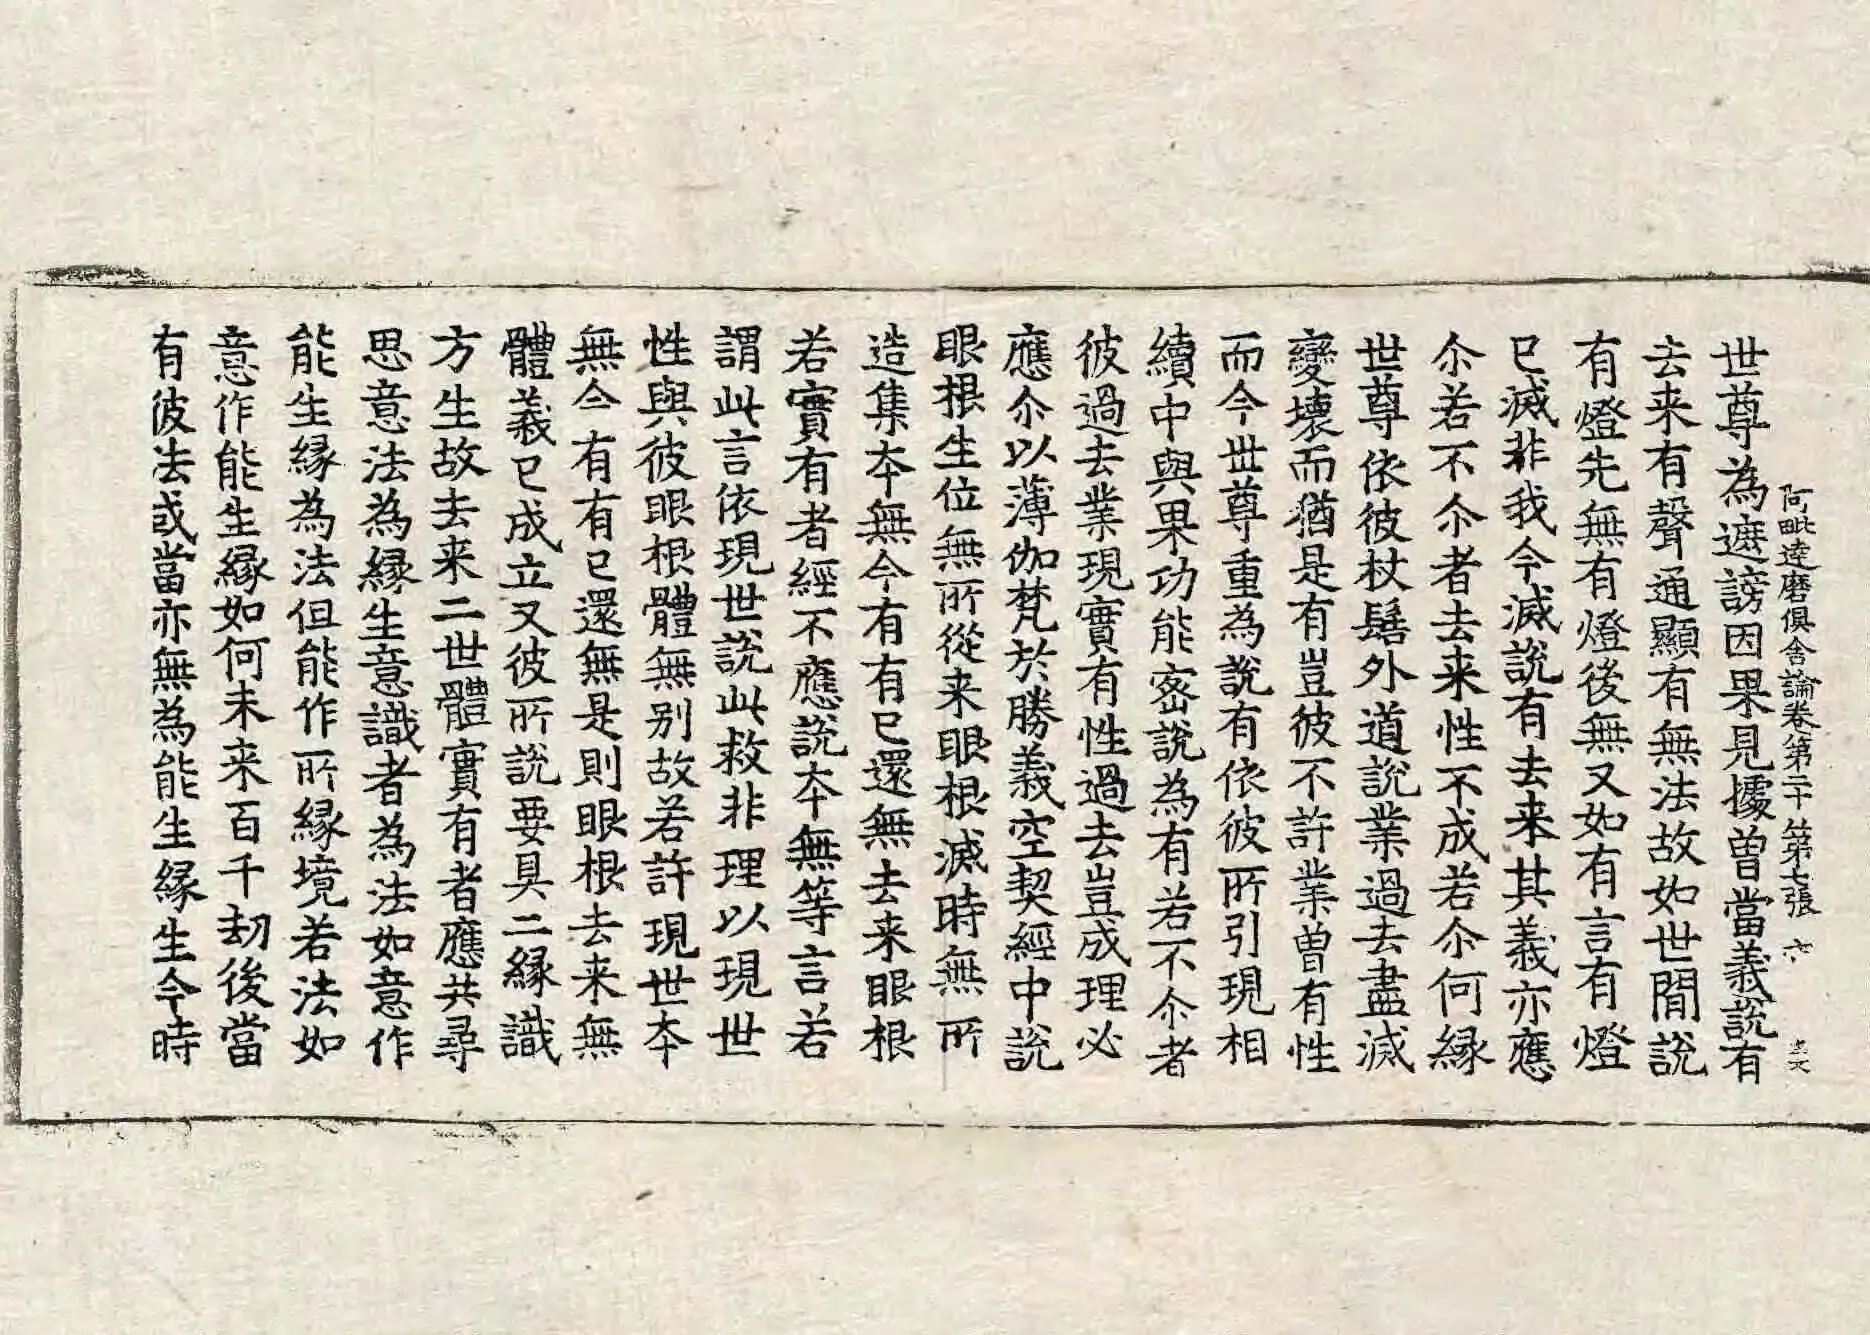 阿毗達磨俱舍論卷第二十 第七張 六
世尊為遮謗因果見據曾當義說有
去来有聲通顯有無法故如世閒說
有燈先無有燈後無又如有言有燈
已滅非我今滅說有去来其義亦應
尒若不尒者去来性不成若尒何緣
世尊依彼杖髻外道說業過去盡滅
變壞而猶是有豈彼不許業曾有性
而今世尊重為說有依彼所引現相
續中與果功能密說為有若不尒者
彼過去業現實有性過去豈成理必
應尒以薄伽梵於勝義空契經中說
眼根生位無所從来眼根滅時無所
造集本無今有有已還無去来眼根
若實有者經不應說本無等言若
謂此言依現世說此救非理以現世
性與彼眼根體無别故若許現世本
無今有有已還無是則眼根去来無
體義已成立又彼所說要具二緣識
方生故去来二世體實有者應共尋
思意法為緣生意識者為法如意作
能生緣為法但能作所緣境若法如
意作能生緣如何未来百千劫後當
有彼法或當亦無為能生緣生今時